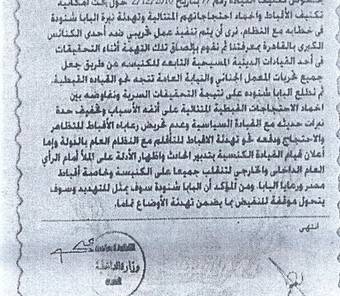 تكثيف الأقباط واخماد احتجاجاتهم المتتالية وتهدئة نبرة البابا شنودة
في خطابه مع النظام. نحن بصدد تنفيذ عمل تخريبي ضد أحدى الكنائس
الكبرى بالقاهرة بمعرفتنا ثم نقوم بإلصاق تلك التهمة أثناء التحقيقات
في أحد القيادات الدينية المسيحية التابعة للكنيسة عن طريق جعل
جميع تحريات المعمل الجنائي والنيابة العامة تتجه نحو القيادة القبطية.
ثم نطلع البابا شنودة على نتيجة التحقيقات السرية ونفاوضه بين
اخماد الاحتجاجات القبطية المتتالية على أتفه الأسباب وتخفيف حدة
نبرات حديثه مع القيادة السياسية وعدم تحريض رعاياه الأقباط للتظاهر
والاحتجاج ودفعه نحو تهدئة الاقباط للتأقلم مع النظام العام بالدولة وإما
أعلان قيام القيادة الكنسية بتدبير الحادث واظهار الأدلة على الملأ أمام الرأي
العام الداخلي والخارجي لتنقلب جميعا على الكنيسة وخاصة أقباط
مصر ورعايا البابا. ومن المؤكد أن البابا شنودة سوف يمثل للتهديد وسوف
يتحول موقفه للنقيض بما يضمن تهدئة الأوضاع تماما.
انتهى
وزارة الداخلية